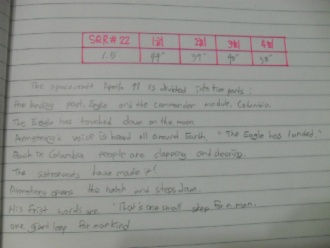 SQR # 22 1st 2nd 3rd 4th
1.5 44" 39" 40" 38"
The spacecraft Apollo 11 is divided into two parts:
the landing part, Eagle and the commander module, Columbia.
The Eagle has touched down on the moon
Armstrong's voice is heard all around Earth. "The Eagle has landed"
Back in Columbia people are clapping and
The astronauts have made it!
Armstrong opens the hatch and steps down.
His first words are "That's one small step for a man,
one giant leap for mankind